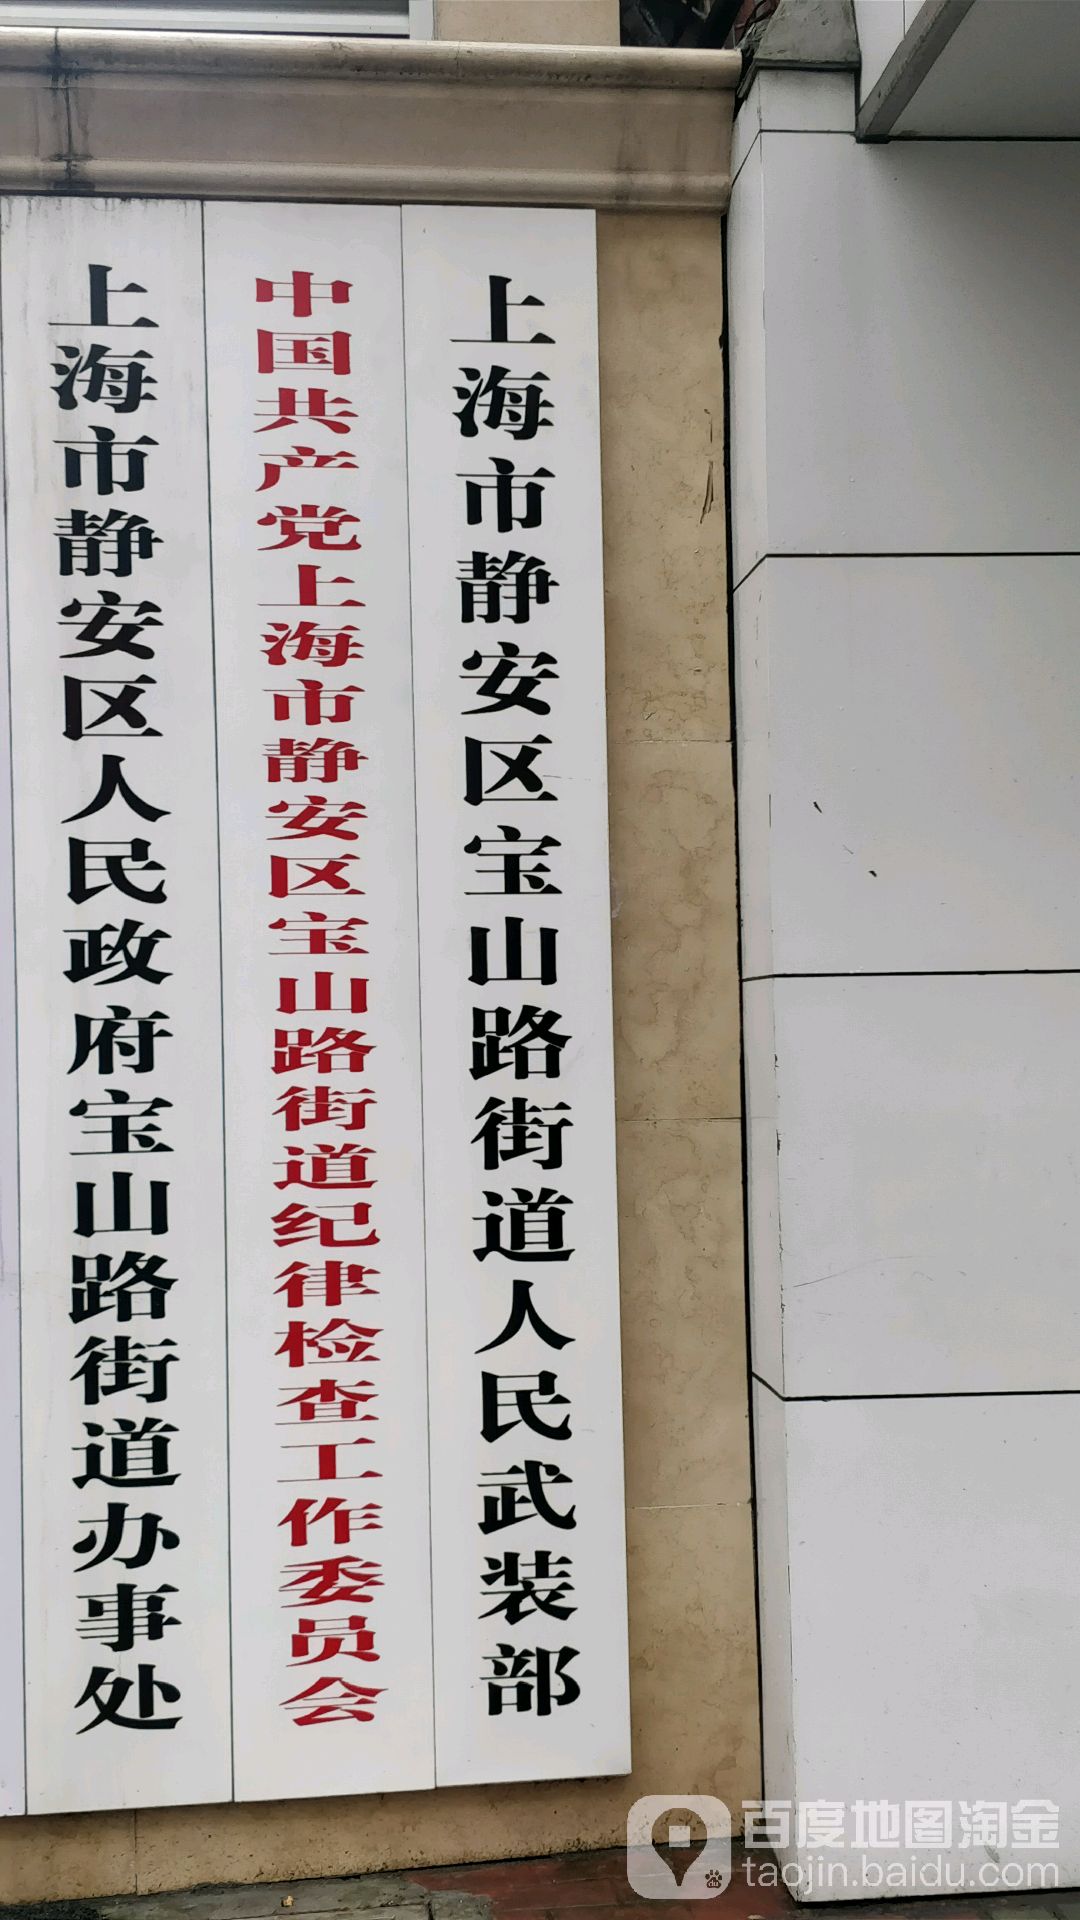 上海市静安区人民政府宝山路街道办事处
中国共产党上海市静安区宝山路街道纪律检查工作委员会
上海市静安区宝山路街道人民武装部
百度地图淘金
taojin.baidu.com